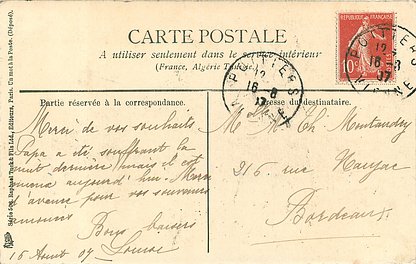 CARTE POSTALE
A utiliser seulement dans le service intérieur
(France, Algérie Tunisie)
RÉPUBLIQUE FRANÇAISE
10c
POITIERS
12
16-8
07
VIENNE
POITIERS
12
16-8
07
VIENNE
Partie réservée à la correspondance.
Adresse du destinataire.
Merci de vos souhaits
Papa a été souffrant la
nuit dernière mais il est
aujourd'hui. Merci
d'avance pour vos souvenirs
Bons baisers
16 Août 07
Ch.
216 rue
Bordeaux
Raphael Tuck & Fils Ltd, Éditeurs, Paris. Un mot à la Poste. (Déposé).